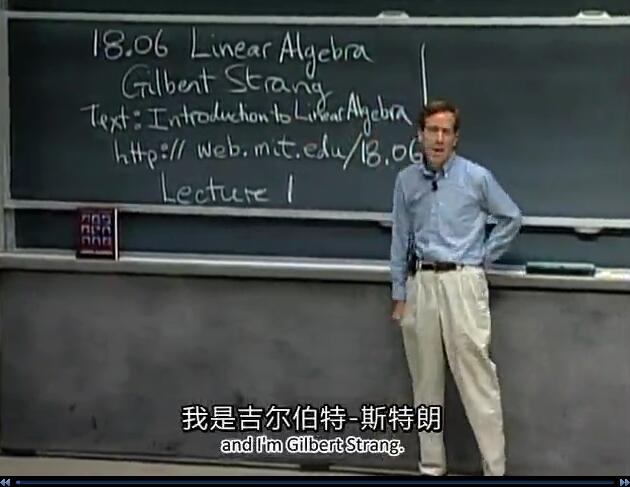 18.06 Linear Algebra
Gilbert Strang
Text: Introduction to Linear Algebra
http:// web.mit.edu/18.06
Lecture 1
我是吉尔伯特-斯特朗
and I'm Gilbert Strang.